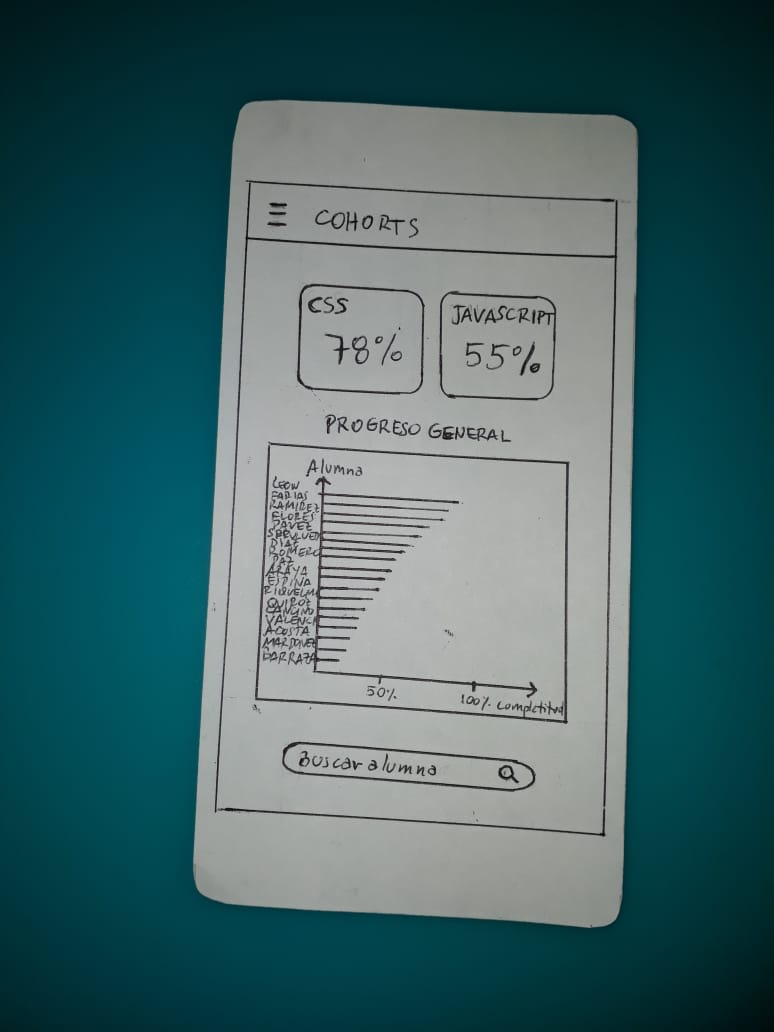 COHORTS
CSS
78%
JAVASCRIPT
55%
PROGRESO GENERAL
Alumna
LEON
FARIAS
RAMIREZ
FLORES
PAVEZ
DIAZ
ROMERO
PAZ
ARAYA
ESPINA
RIQUELM
QUIROZ
CANCINO
VALENCI
ACOSTA
MARQUEZ
BARRAZA
50%
100% Completitud
Buscar alumna